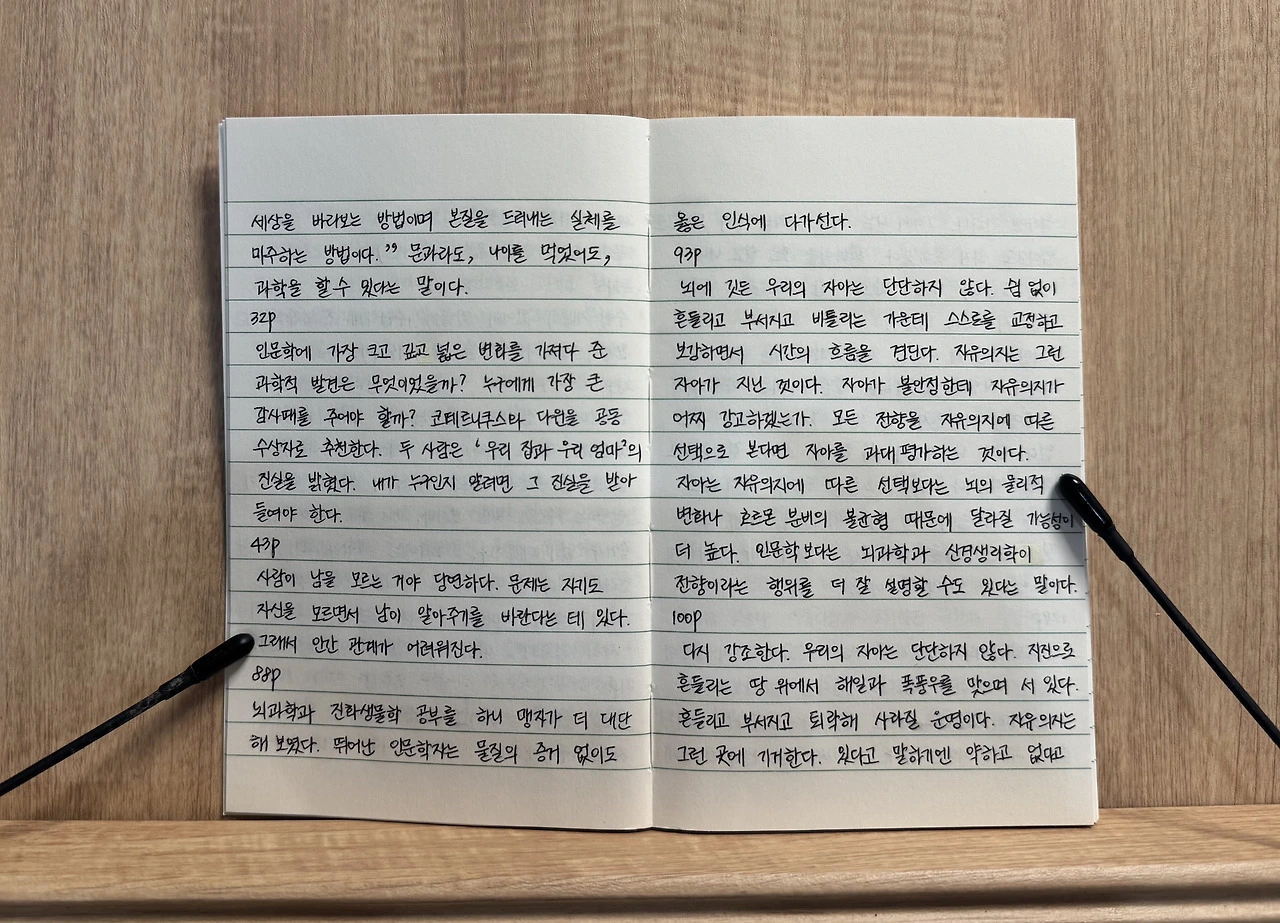 세상을 바라보는 방법이며 본질을 드러내는 실체를
마주하는 방법이다.” 문과라도, 나이를 먹었어도,
과학을 할 수 있다는 말이다.
32p
인문학에 가장 크고 깊고 넓은 변화를 가져다 준
과학적 발견은 무엇이었을까? 누구에게 가장 큰
감사패를 주어야 할까? 코페르니쿠스와 다윈을 공동
수상자로 추천한다. 두 사람은 ‘우리 집과 우리 엄마’의
진실을 밝혔다. 내가 누구인지 알려면 그 진실을 받아
들여야 한다.
43p
사람이 남을 모르는 거야 당연하다. 문제는 자기도
자신을 모르면서 남이 알아주기를 바란다는 데 있다.
그래서 인간 관계가 어려워진다.
88p
뇌과학과 진화생물학 공부를 하니 맹자가 더 대단
해 보였다. 뛰어난 인문학자는 물질의 증거 없이도
옳은 인식에 다가선다.
93p
뇌에 깃든 우리의 자아는 단단하지 않다. 쉼 없이
흔들리고 부서지고 비틀리는 가운데 스스로를 교정하고
보강하면서 시간의 흐름을 견딘다. 자유의지는 그런
자아가 지닌 것이다. 자아가 불안정한데 자유의지가
어찌 강고하겠는가. 모든 전향을 자유의지에 따른
선택으로 본다면 자아를 과대평가하는 것이다.
자아는 자유의지에 따른 선택보다는 뇌의 물리적
변화나 호르몬 분비의 불균형 때문에 달라질 가능성이
더 높다. 인문학보다는 뇌과학과 신경생리학이
전향이라는 행위를 더 잘 설명할 수도 있다는 말이다.
100p
다시 강조한다. 우리의 자아는 단단하지 않다. 지진으로
흔들리는 땅 위에서 해일과 폭풍우를 맞으며 서 있다.
흔들리고 부서지고 퇴락해 사라질 운명이다. 자유의지는
그런 곳에 기거한다. 있다고 말하기엔 약하고 없다고